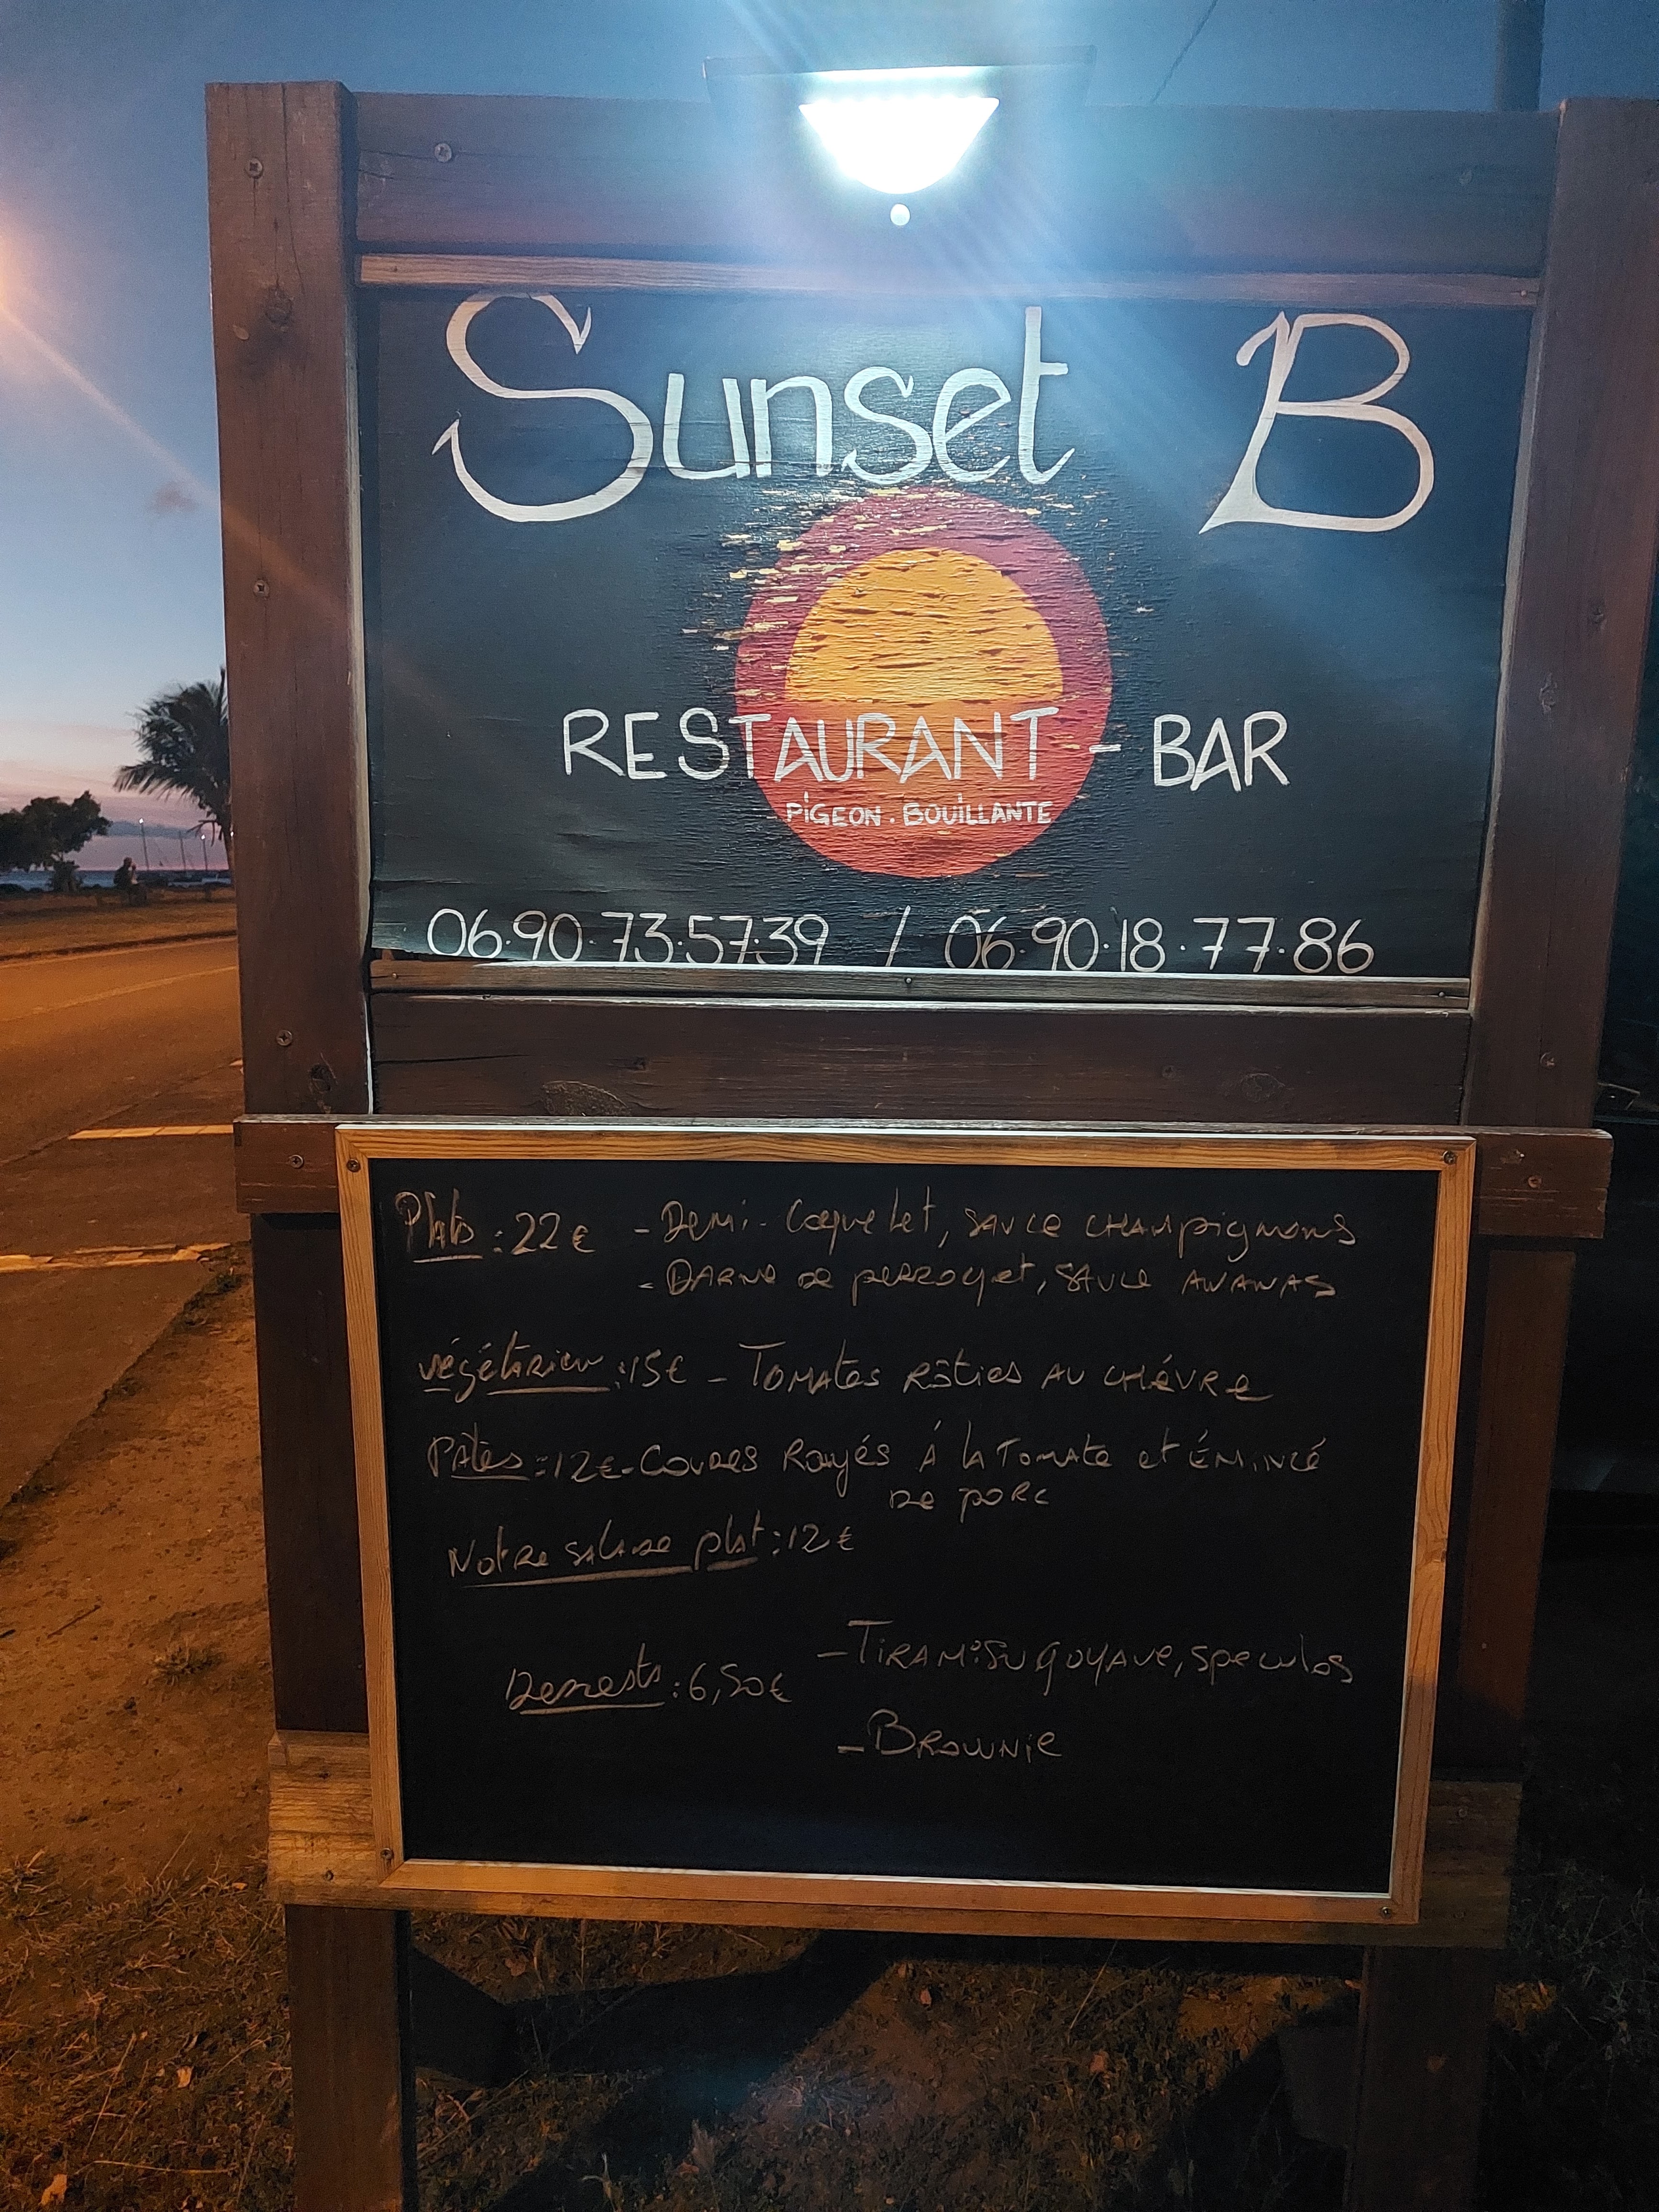 Sunset B
RESTAURANT - BAR
PiGEON . BOUiLLANTE
06.90.73.57.39 / 06.90.18.77.86
Plats : 22€ - Demi-Coquelet, SAUCE CHAMpignons
- DARNE DE perroquet, SAUCE ANANAS
végétarien : 15€ - TOMATES Rôties AU CHÉVRE
PÂTES : 12€ - Coudes Rayés À lA TOMATE et ÉMINCÉ
DE PORC
Notre SALADE plat : 12€
- TiRAMiSU gOYAVE, speculos
Desserts : 6,50€
- BROWNiE